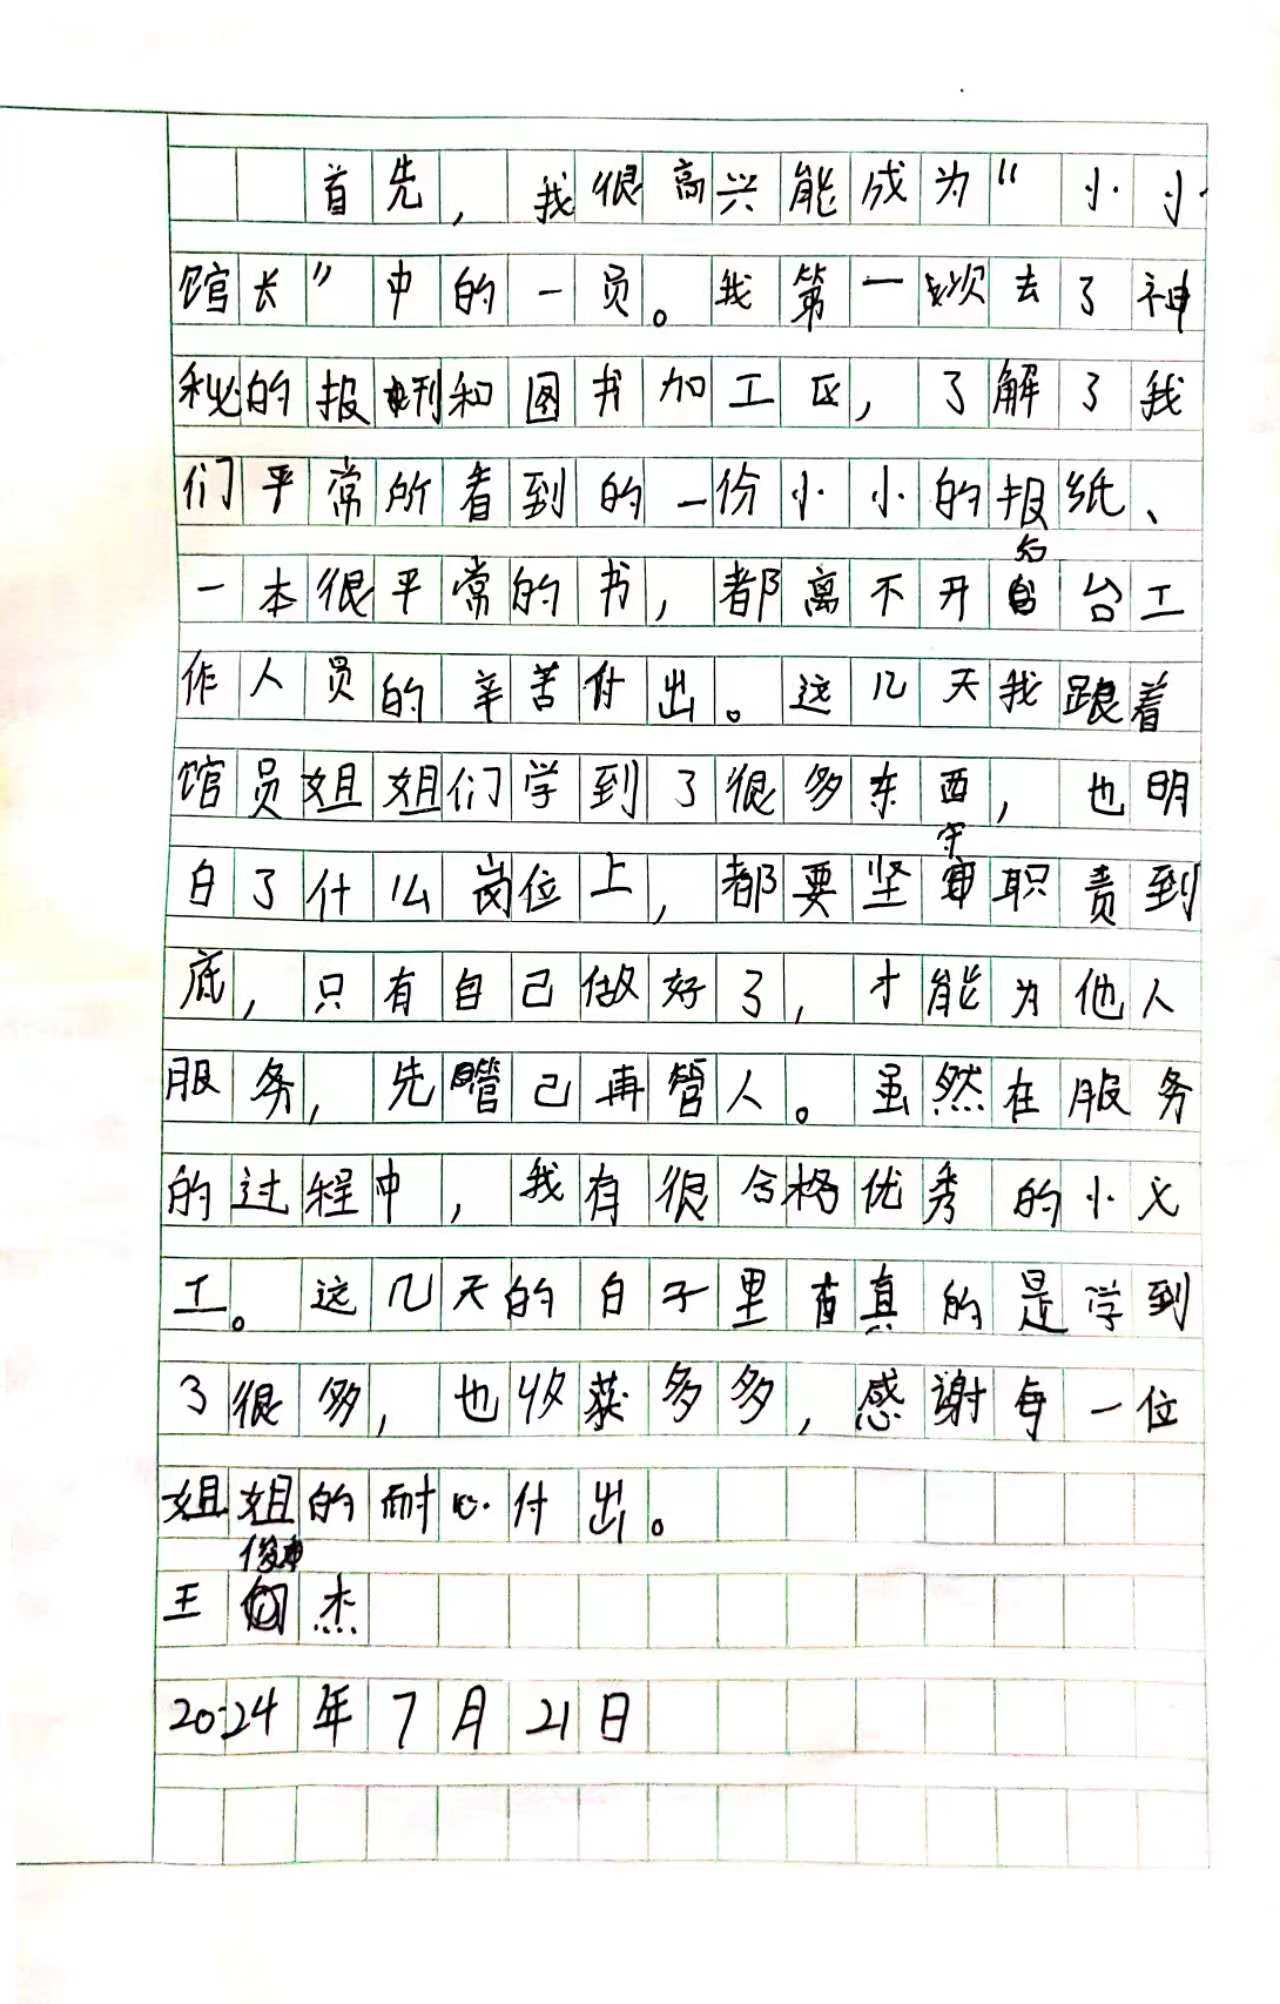 首先，我很高兴能成为“小小
馆长”中的一员。我第一次去了神
秘的报刊和图书加工区，了解了我
们平常所看到的一份小小的报纸、
一本很平常的书，都离不开后台工
作人员的辛苦付出。这几天我跟着
馆员姐姐们学到了很多东西，也明
白了什么岗位上，都要坚守职责到
底，只有自己做好了，才能为他人
服务，先管己再管人。虽然在服务
的过程中，我有很合格优秀的小义
工。这几天的日子里真的是学到
了很多，也收获多多，感谢每一位
姐姐的耐心付出。
王俊杰
2024年7月21日